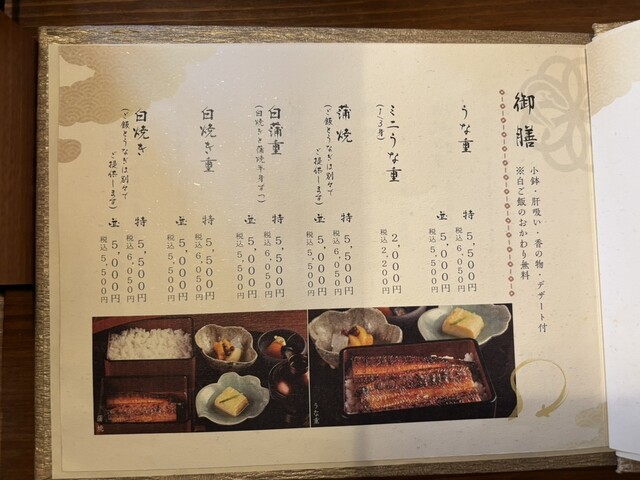 御膳
小鉢・肝吸い・香の物・デザート付
※白ご飯のおかわり無料
うな重
特 5,500円
税込 6,050円
並 5,000円
税込 5,500円
ミニうな重
2,000円
税込 2,200円
蒲焼
(ご飯とうなぎは別々で
ご提供します)
特 5,500円
税込 6,050円
並 5,000円
税込 5,500円
白蒲重
(白焼きと蒲焼半身ずつ)
特 5,500円
税込 6,050円
並 5,000円
税込 5,500円
白焼き重
特 5,500円
税込 6,050円
並 5,000円
税込 5,500円
白焼き
(ご飯とうなぎは別々で
ご提供します)
特 5,500円
税込 6,050円
並 5,000円
税込 5,500円
蒲焼
うな重